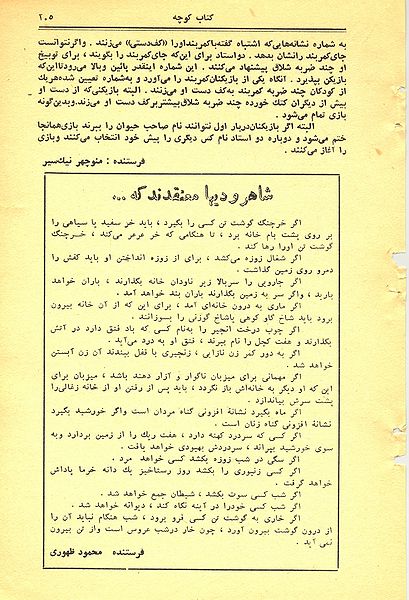 کتاب کوچه
۲۰۵
به شماره نشانه‌هایی‌که اشتباه گفته‌باکمربنداورا «کف‌دستی» می‌زنند. واگرنتوانست
جای‌کمربند رانشان بدهد. دواستاد برای این‌که جای‌کمربند را بگویند، برای توبیخ
او چند ضربه شلاق پیشنهاد می‌کنند. این شماره اینقدر پائین وبالا می‌رودتااین‌که
بازیکن بپذیرد. آنگاه یکی از بازیکنان‌کمربند را می‌آورد و به‌شماره تعیین شده‌هریک
از کودکان چند ضربه کمربند به‌کف دست او می‌زنند. البته بازیکنی‌که از دست او
بیش از دیگران کتک خورده چند ضربه شلاق‌بیشتربرکف دست او می‌زند.وبدین‌گونه
بازی تمام می‌شود.
البته اگر بازیکنان‌دربار اول نتوانند نام صاحب حیوان را ببرند بازی‌همانجا
ختم می‌شود و دوباره دو استاد نام کس دیگری را پیش خود انتخاب می‌کنند وبازی
را آغاز می‌کنند.
فرستنده : منوچهر نیک‌سیر
شاهرودیها معتقدند که ...
اگر خرچنگ گوشت تن کسی را بگیرد ، باید خز سفید یا سیاهی را
بر روی پشت بام خانه برد ، تا هنگامی که خر عرعر می‌کند ، خرچنگ
گوشت تن اورا رها کند .
اگر شغال زوزه می‌کشد ، برای از زوزه انداختن او باید کفش را
دمرو روی زمین گذاشت .
اگر جارویی را سربالا زیر ناودان خانه بگذارند ، باران خواهد
بارید ، واگر سر به زمین بگذارند باران بند خواهد آمد .
اگر ماری به درون خانه‌ای آمد ، برای این که از آن خانه بیرون
برود باید شاخ گاو کوهی یاشاخ گوزنی را بسوزانند .
اگر چوب درخت انجیر را به‌نام کسی که باد فتق دارد در آتش
بگذارند و هفت کچل را نام ببرند ، فتق او به درد می‌آید .
اگر به دور کمر زن نازایی ، زنجیری با قفل ببندند آن زن آبستن
خواهد شد .
اگر مهمانی برای میزبان ناگوار و آزار دهند باشد ، میزبان برای
این که او دیگر به خانه‌اش باز نگردد ، باید پس از رفتن او از خانه زغالی‌را
پشت سرش بیاندازد .
اگر ماه بگیرد نشانهٔ افزونی گناه مردان است واگر خورشید بگیرد
نشانهٔ افزونی گناه زنان است .
اگر کسی که سردرد کهنه دارد ، هفت ریگ را از زمین بردارد وبه
سوی خورشید بپراند ، سردردش بهبودی خواهد یافت .
اگر سگی در شب زوزه بکشد کسی خواهد مرد .
اگر کسی زنبوری را بکشد روز رستاخیز یک دانه خرما پاداش
خواهد گرفت .
اگر شب کسی سوت بکشد ، شیطان جمع خواهد شد .
اگر شب کسی خودرا در آینه نگاه کند ، دیوانه خواهد شد .
اگر خاری به گوشت تن کسی فرو برود ، شب هنگام نباید آن را
از درون گوشت بیرون آورد ، چون خار درشب عروس است واز تن بیرون
نمی آید .
فرستنده محمود ظهوری